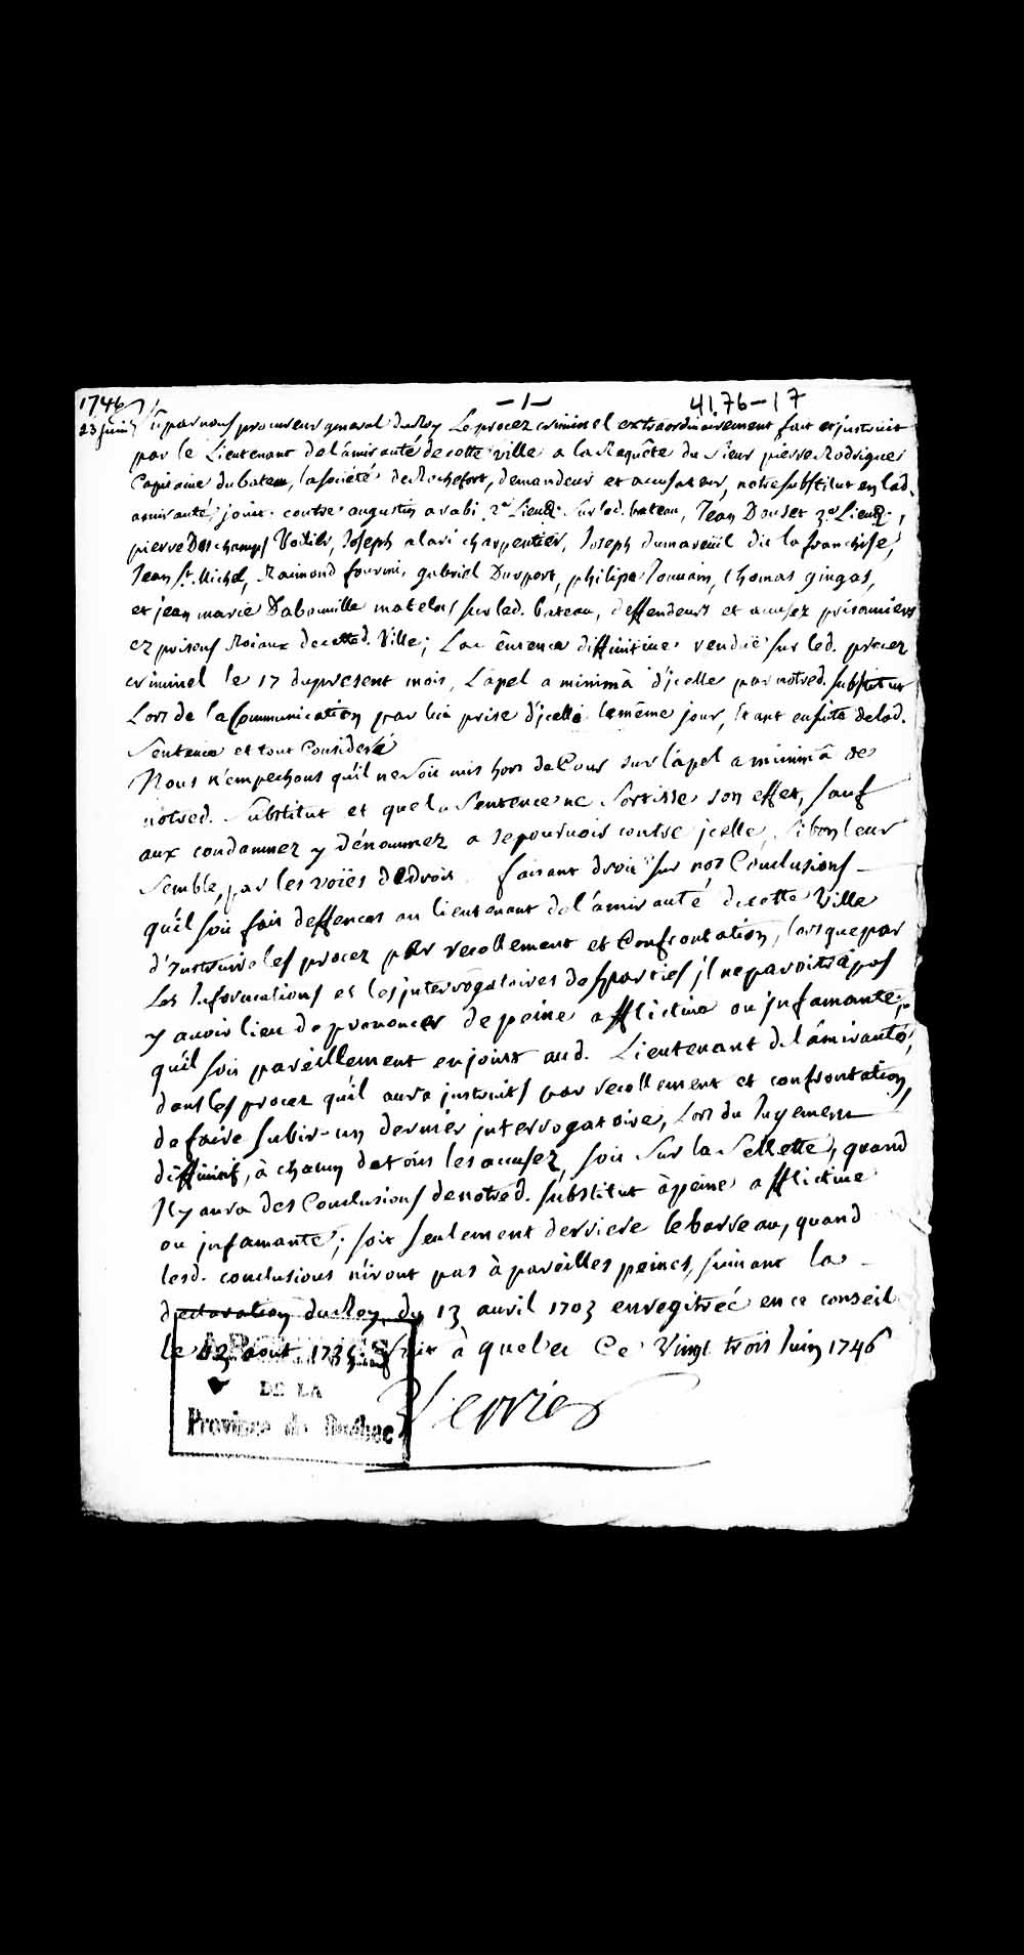 1746
23 juin
-1-
4176-17
Vû par nous procureur general du Roy Le procez criminel extraordinairement fait et jnstruit
par le Lieutenant de l'amirauté de cette ville a la Requête du Sieur pierre Rodrigue
Capitaine du bateau, la société de Rochefort, demandeur et accusateur, notre substitut en lad.
amirauté joint. contre augustin arabi 2e Lieut. sur led. bateau, Jean Doucet 3e Lieut.,
pierre Deschamps Voilier, Joseph alari charpentier, Joseph dumareüil dit la franchise,
Jean St. Michel, Raimond fourmi, gabriel Duprort, philipe Jouuain, thomas gingas,
et jean marie Dabouville matelots sur led. bateau, deffendeurs et accusez prisonniers
ez prisons Roiaux de cetted. Ville; La sentence diffinitiue rendüe sur led. procez
criminel le 17 du present mois, L'apel a minimâ d'jcelle par notred. substitut
Lors de la Communication par lui prise d'jcelle le même jour, étant ensuite de lad.
Sentence et tout Consideré
Nous n'empechons qu'il ne soit mis hors de Cour sur l'apel a minimâ de
notred. Substitut et que la Sentence ne sortisse son effet, sauf
aux condamnez y dénommez a se pouruoir contre jcelle, si bon leur
semble, par les voïes de droit faisant droit sur nos Conclusions -
qu'il soit fait deffences au lieutenant de l'amirauté de cette Ville
d'Jnstruire les procez par recollement et Confrontation, lorsque par
Les Informations et les jnterrogatoires des parties jl ne paroitra pas
y auoir lieu de prononcer de peine afflictiue ou jnfamante;
qu'il soit pareillement enjoint aud. Lieutenant de l'amirauté,
dans les procez qu'il aura jnstruits par recollement et confrontation,
de faire subir un dernier jnterrogatoire, Lors du Jugement
diffinitif, à chacun de tous les accusez, soit sur la sellette, quand
Il y aura des Conclusions de notred. substitut à peine afflictiue
ou jnfamante; soit seulement derriere le barreau, quand
lesd. conclusions n'iront pas à pareilles peines, suiuant la -
declaration du Roy, du 13 auril 1703 enregitreé en ce conseil
le 12 aout 1735. fait à quebec Ce Vingt trois Juin 1746
Verrier
ARCHIVES
DE LA
Province de Québec